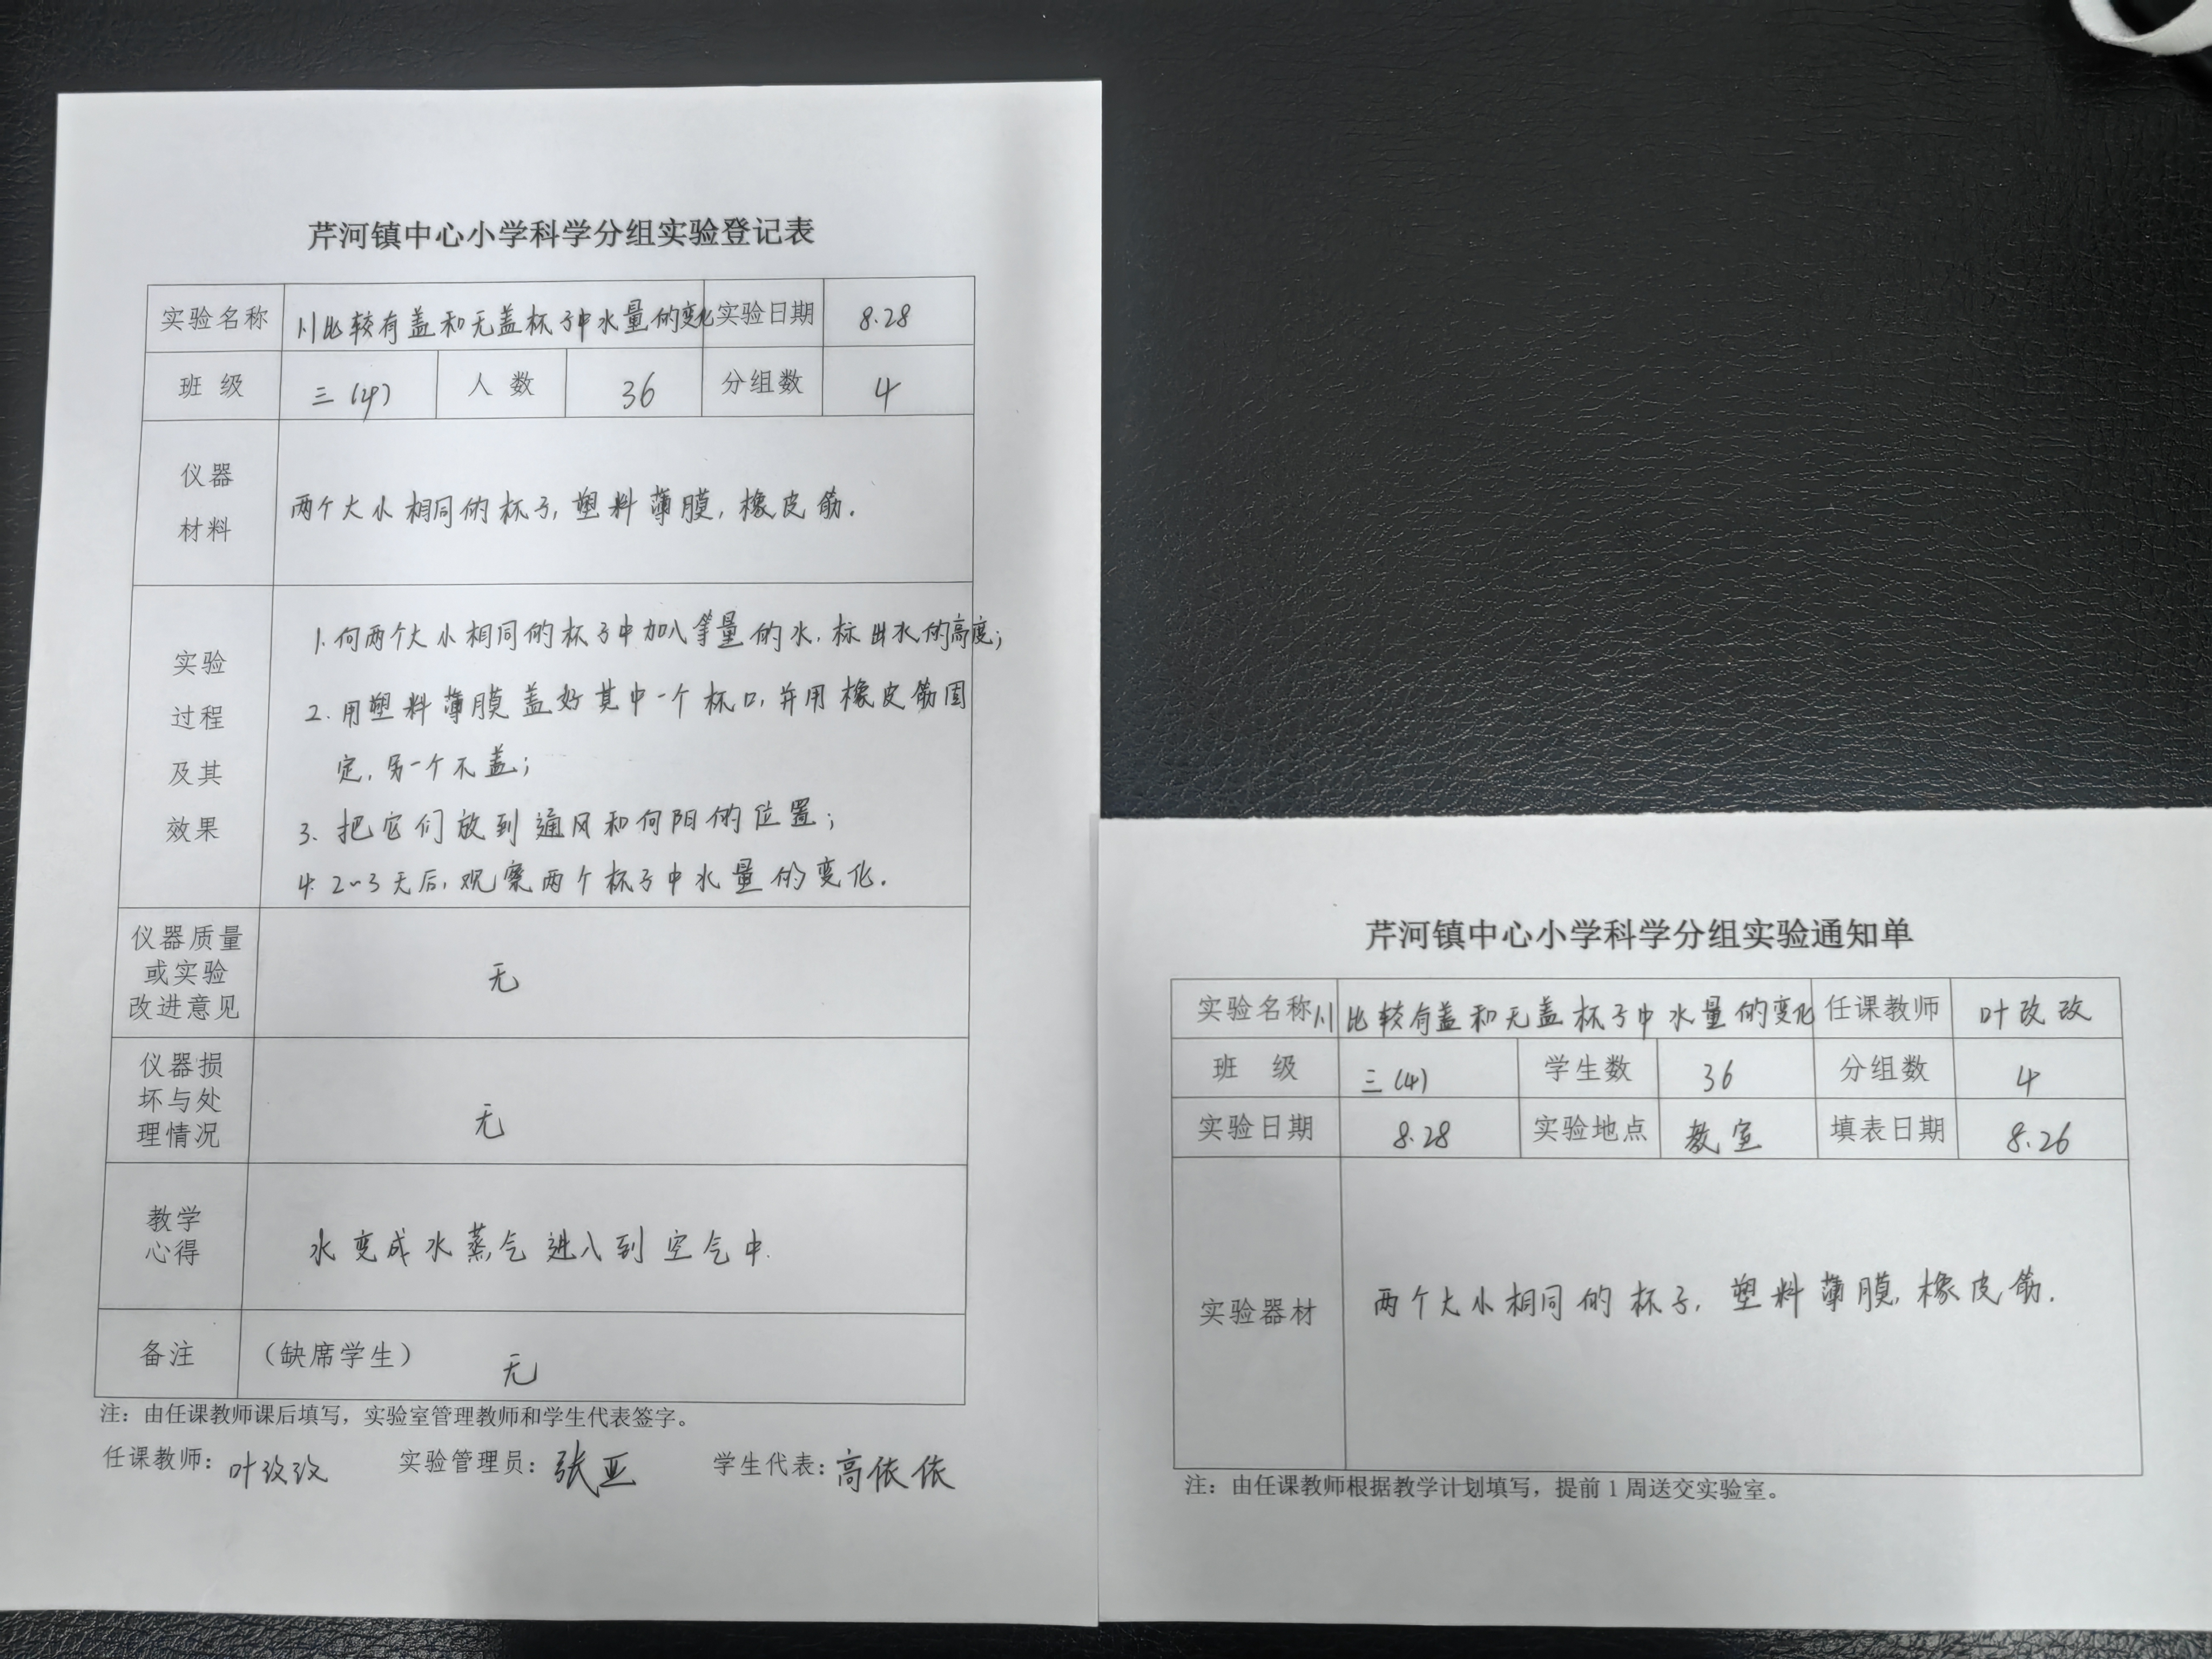 芹河镇中心小学科学分组实验登记表
实验名称 1.1比较有盖和无盖杯子中水量的变化 实验日期 8.28
班 级 三(4) 人 数 36 分组数 4
仪器
材料
两个大小相同的杯子,塑料薄膜,橡皮筋.
实验
过程
及其
效果
1.向两个大小相同的杯子中加入等量的水,标出水的高度;
2.用塑料薄膜盖好其中一个杯口,并用橡皮筋固
定,另一个不盖;
3.把它们放到通风和向阳的位置;
4.2~3天后,观察两个杯子中水量的变化.
仪器质量
或实验
改进意见
无
仪器损
坏与处
理情况
无
教学
心得
水变成水蒸气进入到空气中.
备注 (缺席学生) 无
注:由任课教师课后填写,实验室管理教师和学生代表签字。
任课教师:叶改改 实验管理员:张亚 学生代表:高依依
芹河镇中心小学科学分组实验通知单
实验名称 1.1比较有盖和无盖杯子中水量的变化 任课教师 叶改改
班 级 三(4) 学生数 36 分组数 4
实验日期 8.28 实验地点 教室 填表日期 8.26
实验器材 两个大小相同的杯子,塑料薄膜,橡皮筋.
注:由任课教师根据教学计划填写,提前1周送交实验室。